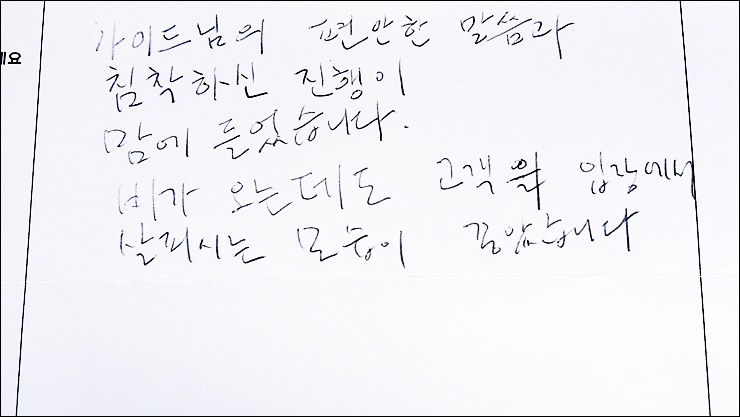 가이드님의 편안한 말씀과
네요
침착하신 진행이
맘에 들었습니다.
비가 오는데도 고객의 입장에서
살피시는 모습이